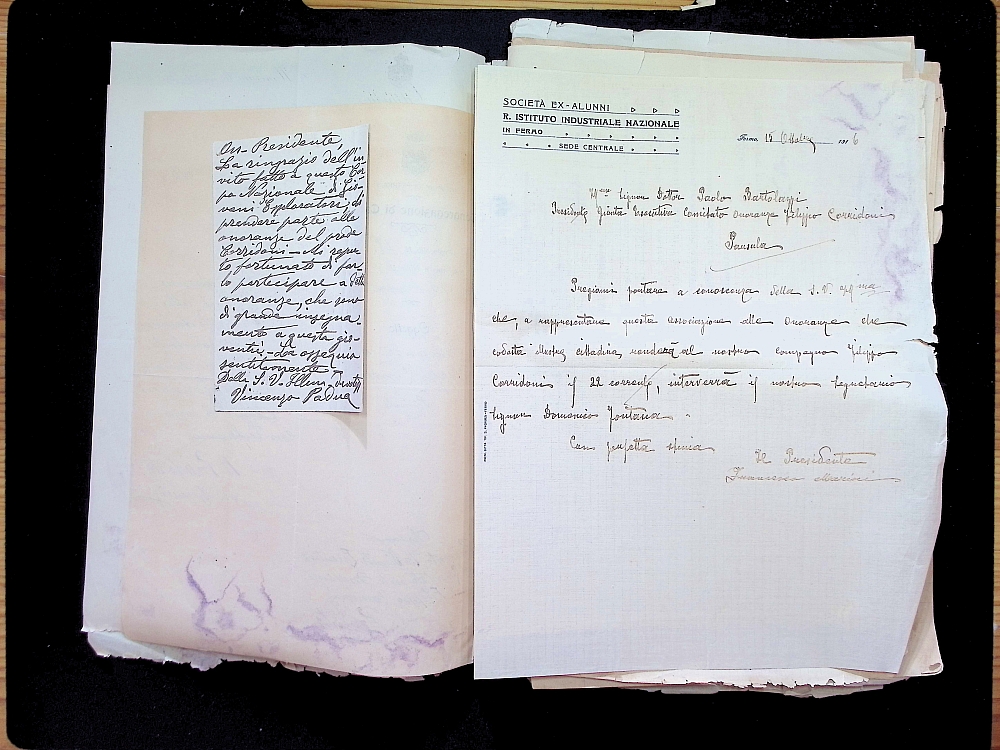 On. Presidente,
La ringrazio dell'in-
vito fatto a questo Cor-
po Nazionale di Gio-
vani Esploratori, di
prendere parte alle
onoranze del prode
Corridoni - Mi repu-
to fortunato di far-
lo partecipare a dette
onoranze, che sono
di grande insegna-
mento a questa gio-
ventù. - La ossequio
sentitamente
Della S. V. Illma
Vincenzo Padua
SOCIETÀ EX-ALUNNI
R. ISTITUTO INDUSTRIALE NAZIONALE
IN FERMO
SEDE CENTRALE
Fermo, 18 Ottobre 1916
Signor Dottor Paolo Bartolazzi
Presidente Giunta Esecutiva Comitato Onoranze Filippo Corridoni
Pausula
Pregiomi portare a conoscenza della S. V. Ill.ma
che, a rappresentare questa associazione alle Onoranze che
codesta illustre cittadina renderà al nostro compagno Filippo
Corridoni il 22 corrente, interverrà il nostro Segretario
Signor Domenico Fontana.
Con perfetta stima
Il Presidente
Francesco